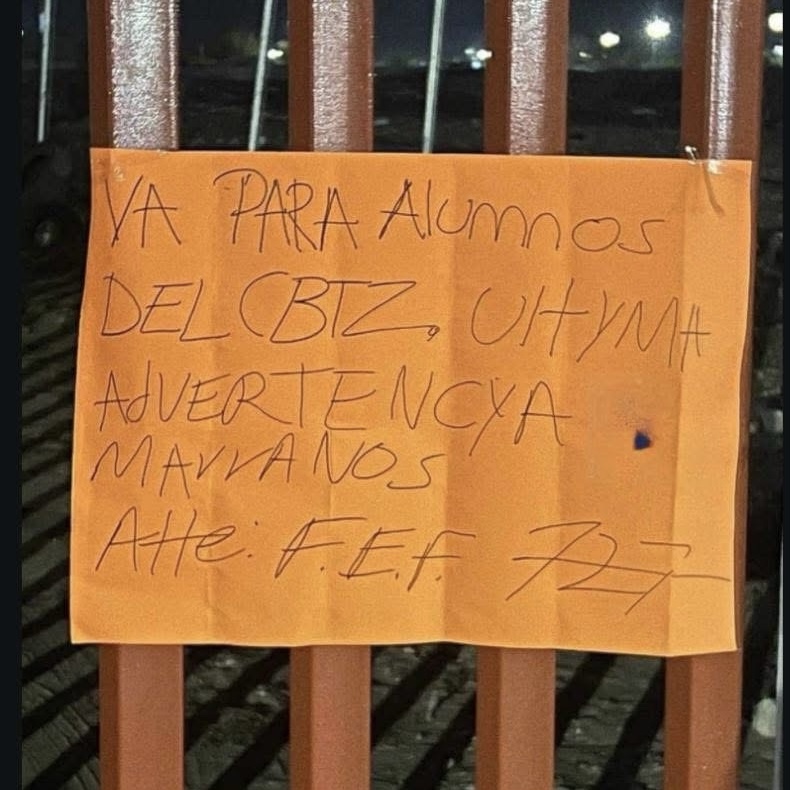 VA PARA Alumnos
DEL CBTZ, UltYMA
AdVERTENCYA
MArrANOS
Atte: F.E.F. 727